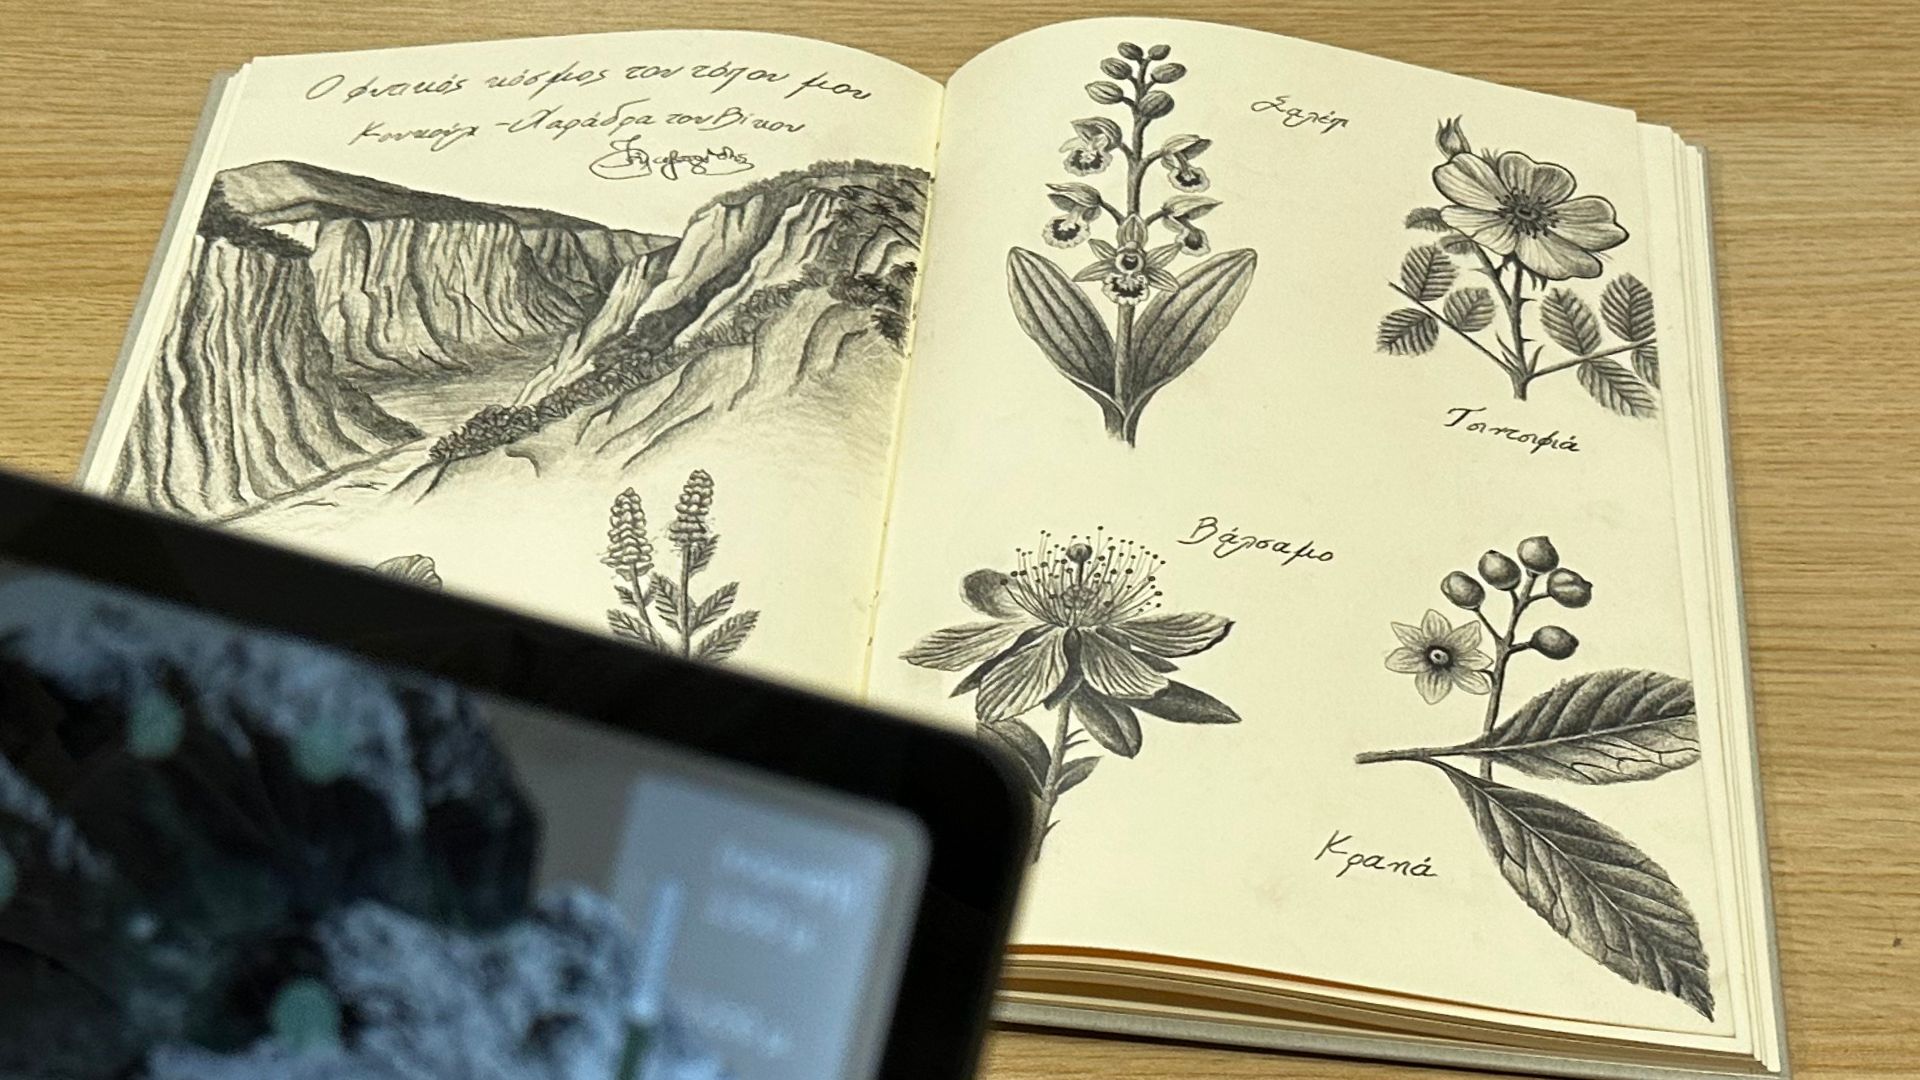 Ο φυτικός κόσμος του τόπου μου
Κουκούλι - Χαράδρα του Βίκου
Σαλέπι
Τσιντσιφιά
Βάλσαμο
Κραπά